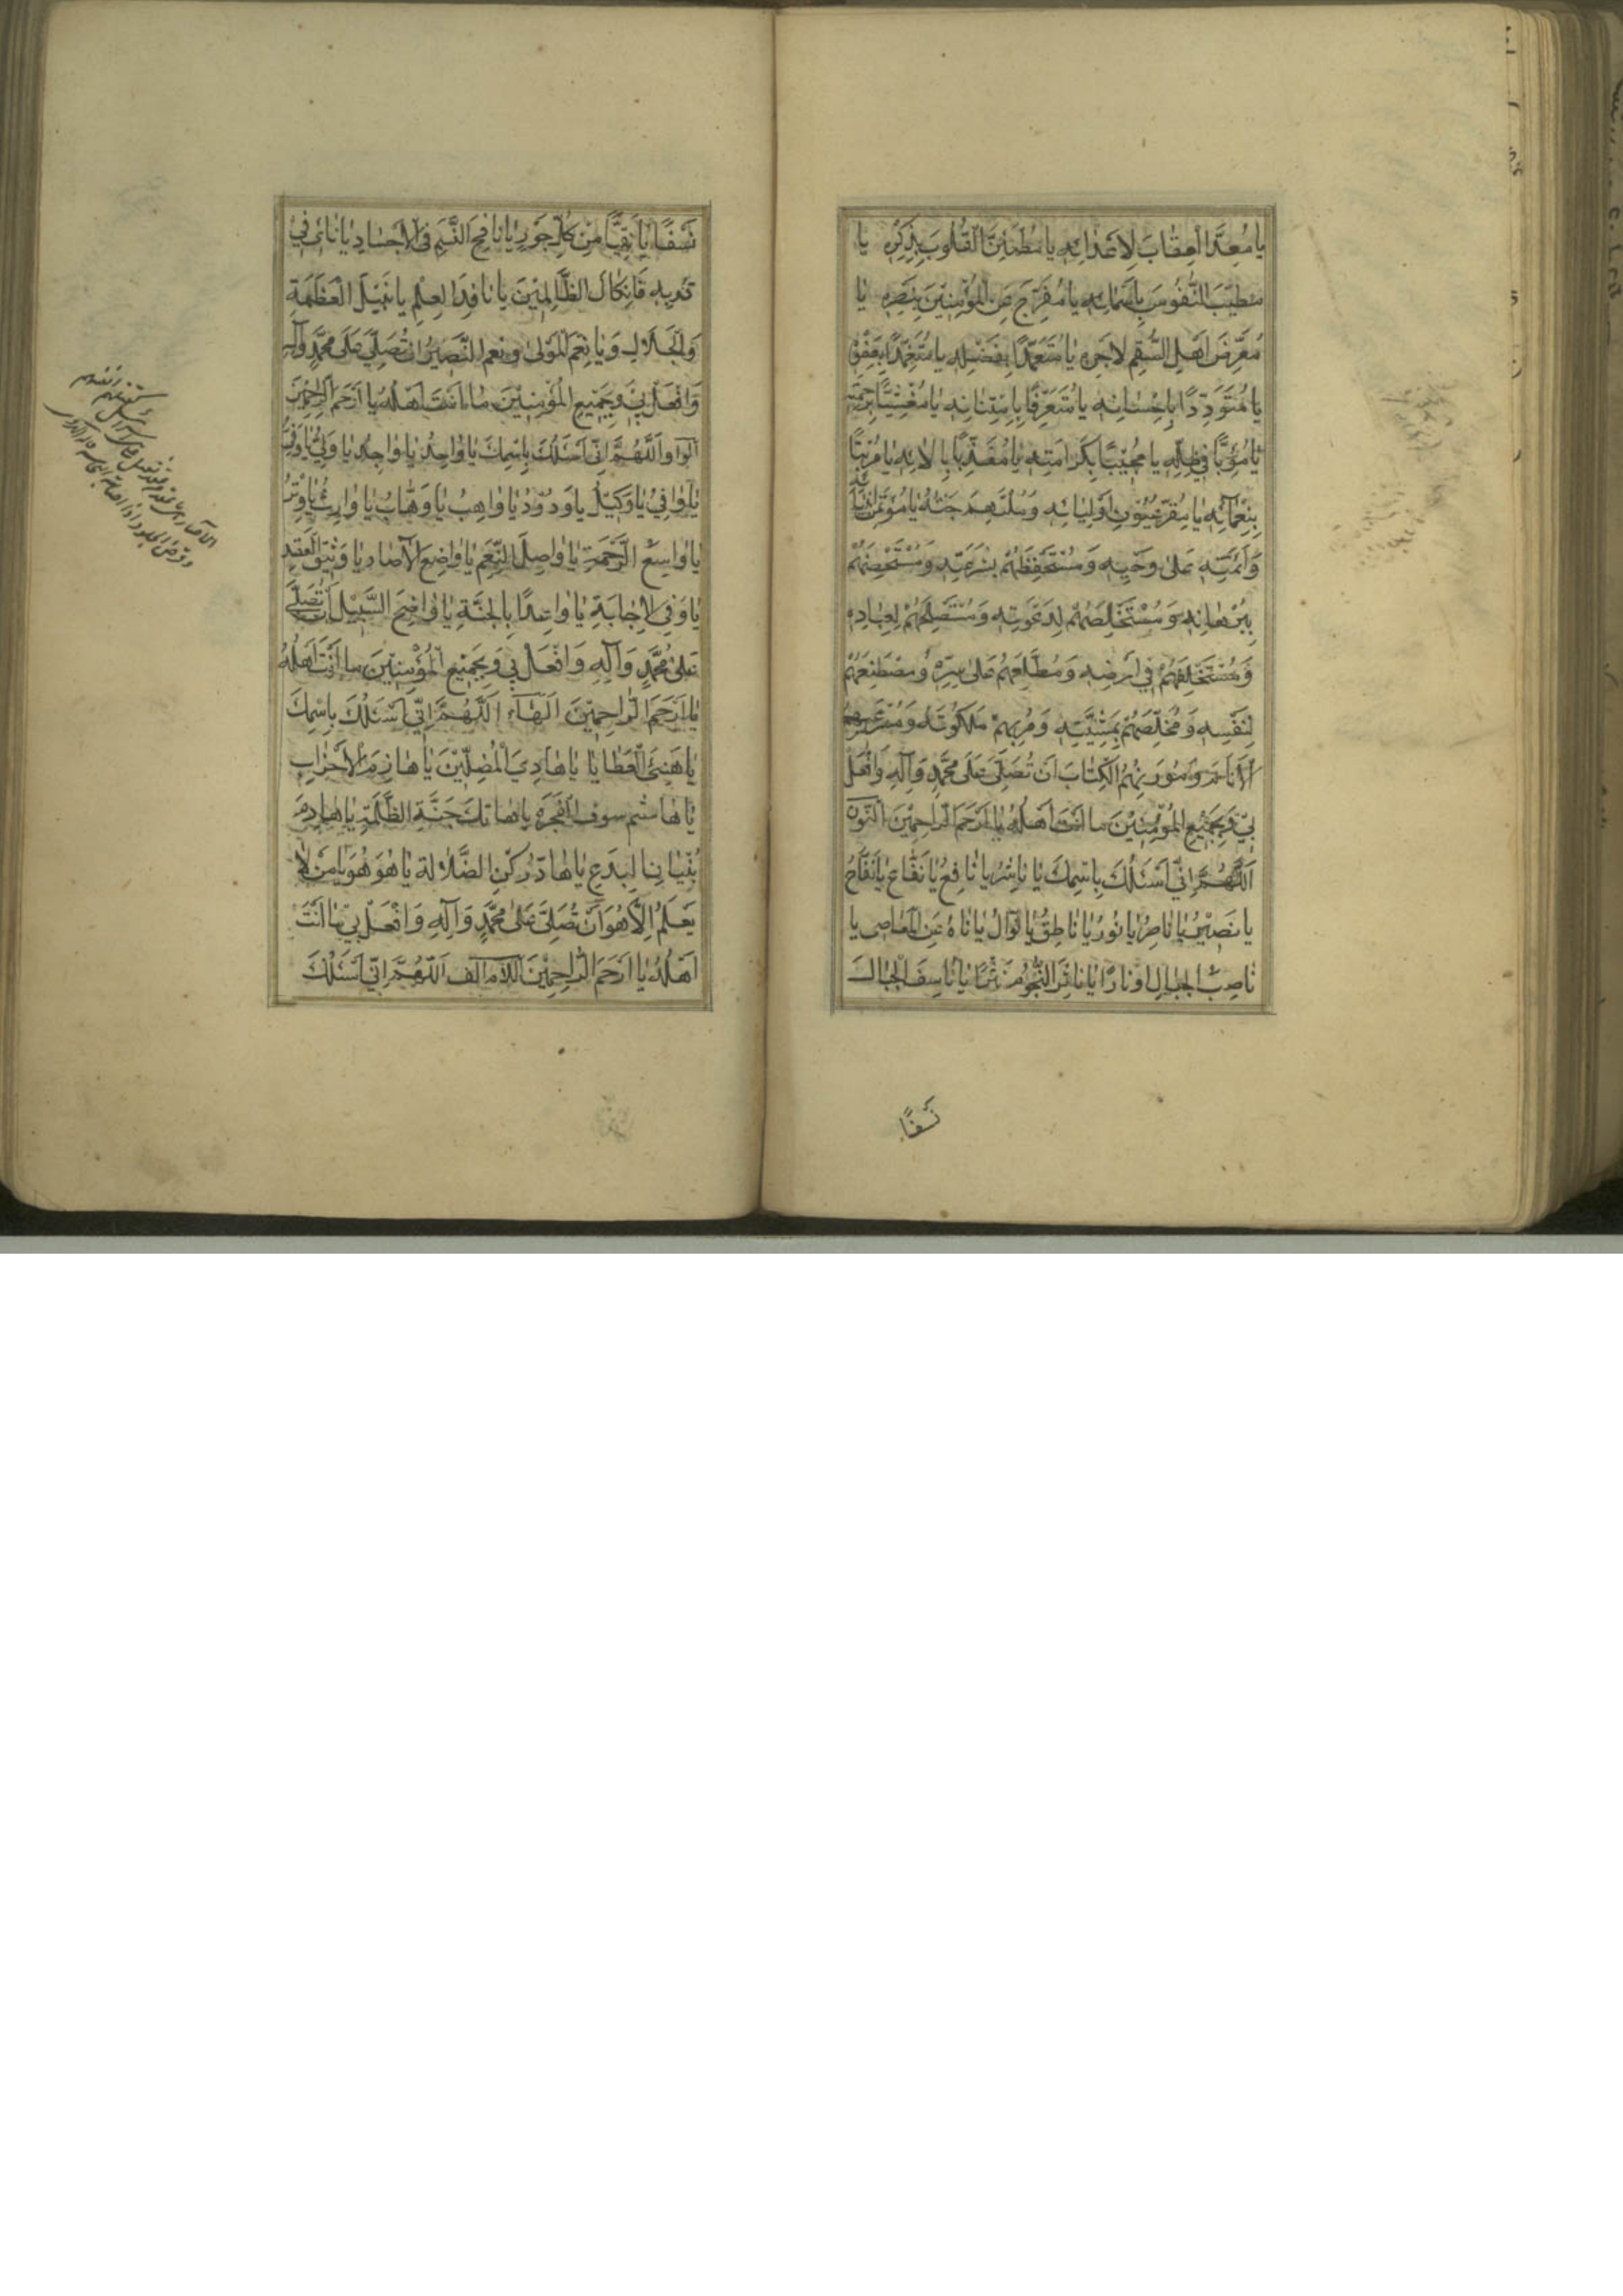 يا مُعِدَّ الْعِقٰابَ لِاَعْدٰائِهِ يا مُطْمَئِنَّ الْقُلُوبَ بِذِكْرِهِ يا
مُطَيِّبَ النُّفُوسَ بِاَسْمائِهِ يا مُفَرِّجَ عَنِ الْمُؤْمِنِينَ بِنَصْرِهِ يا
مُعَرِّضَ اَهْلِ السُّقْمِ لِاَجْرِهِ يا مُتَعَمِّدًا بِفَضْلِهِ يا مُتَغَمِّدًا بِعَفْوِهِ
يا مُتَوَدِّدًا بِاِحْسٰانِهِ يا مُتَعَرِّفًا بِامْتِنٰانِهِ يا مُغْشِيًا بِرَحْمَتِهِ
يا مُؤْوِيًا فِي ظِلِّهِ يا مُجِيبًا بِكَرامَتِهِ يا بِاٰلائِهِ يا مُرَبِّيًا
بِنَعْمٰائِهِ يا مُقِرَّ عُيُونِ اَوْلِيٰائِهِ وَ جَنَّتَهُ يا
وَاَئِمَّتِهِ عَلىٰ وَحْيِهِ وَمُسْتَحْفِظَهُمْ بِشَرْعِيَّتِهِ وَمُسْتَخِصَّهُمْ
بِبُرْهٰانِهِ وَمُسْتَخْلِصَهُمْ لِدَعْوَتِهِ وَمُسْتَصْلِحَهُمْ لِعِبٰادِهِ
وَمُسْتَخْلِفَهُمْ فِي اَرْضِهِ وَمُطَّلِعَهُمْ عَلىٰ سِرِّهِ وَمُصْطَنِعَهُمْ
لِنَفْسِهِ وَمُخَلِّصَهُمْ بِمَشِيَّتِهِ وَمُرِيَهُمْ مَلَكُوتَهُ وَمُسْتَرْعِيَهُمُ
الْاَنٰامَ وَمُوَرِّثَهُمُ الْكِتٰابَ اَنْ تُصَلِّيَ عَلىٰ مُحَمَّدٍ وَآلِهِ وَافْعَلْ
بِي وَبِجَمِيعِ الْمُؤْمِنِينَ ما اَنْتَ اَهْلُهُ يا اَرْحَمَ الرّاحِمِينَ النُّون
اَللّٰهُمَّ اِنِّي اَسْئَلُكَ بِاسْمِكَ يا نٰاشِرُ يا نٰافِعُ يا نَفّٰاعُ يا نَفّٰاحُ
يا نَصِيرُ يا نٰاصِرُ يا نُورُ يا نٰاطِقُ يا نَوّٰالُ يا نٰاهُ عَنِ الْمَعٰاصِي يا
نٰاصِبَ الْجِبٰالِ اَوْتٰادًا يا نٰاثِرَ النُّجُومِ نَثْرًا يا نٰاسِفَ الْجِبٰالِ
نَسْفًا
نَسْفًا يا نَقِيًّا مِنْ كُلِّ جَوْرٍ يا نٰافِحَ النَّسَمِ فِي الْاَجْسٰادِ يا نٰائِ فِي
قُرْبِهِ يا نَكّالَ الظّالِمِينَ يا نٰافِذَ الْعِلْمِ يا نَبِيلَ الْعَظَمَةِ
وَالْجَلالِ وَيا نِعْمَ الْمَوْلىٰ وَنِعْمَ النَّصِيرُ اَنْ تُصَلِّيَ عَلىٰ مُحَمَّدٍ وَآلِهِ
وَافْعَلْ بِي وَبِجَمِيعِ الْمُؤْمِنِينَ مٰا اَنْتَ اَهْلُهُ يا اَرْحَمَ الرّاحِمِينَ
اَلْواو اَللّٰهُمَّ اِنِّي اَسْئَلُكَ بِاسْمِكَ يا وٰاحِدُ يا وٰاجِدُ يا وَلِيُّ يا وَفِيُّ
يا وٰافِي يا وَكِيلُ يا وَدُودُ يا وٰاهِبُ يا وَهّٰابُ يا وٰارِثُ يا وِتْرُ
يا وٰاسِعَ الرَّحْمَةِ يا وٰاصِلَ النِّعَمِ يا وٰاضِعَ الْاٰصٰادِ يا وَثِيقَ الْعَهْدِ
يا وَفِي الْاِجٰابَةِ يا وٰاعِدًا بِالْجَنَّةِ يا وٰاضِحَ السَّبِيلِ اَنْ تُصَلِّيَ
عَلىٰ مُحَمَّدٍ وَآلِهِ وَافْعَلْ بِي وَبِجَمِيعِ الْمُؤْمِنِينَ ما اَنْتَ اَهْلُهُ
يا اَرْحَمَ الرّاحِمِينَ اَلْهٰاء اَللّٰهُمَّ اِنِّي اَسْئَلُكَ بِاسْمِكَ
يا هَنِيءَ الْعَطٰايٰا يا هٰادِيَ الْمُضِلِّينَ يا هٰازِمَ الْاَحْزٰابِ
يا هٰاشِمَ سوق الْفَجَرَةِ يا هٰاتِكَ جُنَّةِ الظَّلَمَةِ يا هٰادِمَ
بُنْيٰانِ الْبِدَعِ يا هٰادَّ رُكْنِ الضَّلالَةِ يا هُوَ هُوَ يا مَنْ لا
يَعْلَمُ اِلّا هُوَ اَنْ تُصَلِّيَ عَلىٰ مُحَمَّدٍ وَآلِهِ وَافْعَلْ بِي مٰا اَنْتَ
اَهْلُهُ يا اَرْحَمَ الرّاحِمِينَ اللّام الف اَللّٰهُمَّ اِنِّي اَسْئَلُكَ